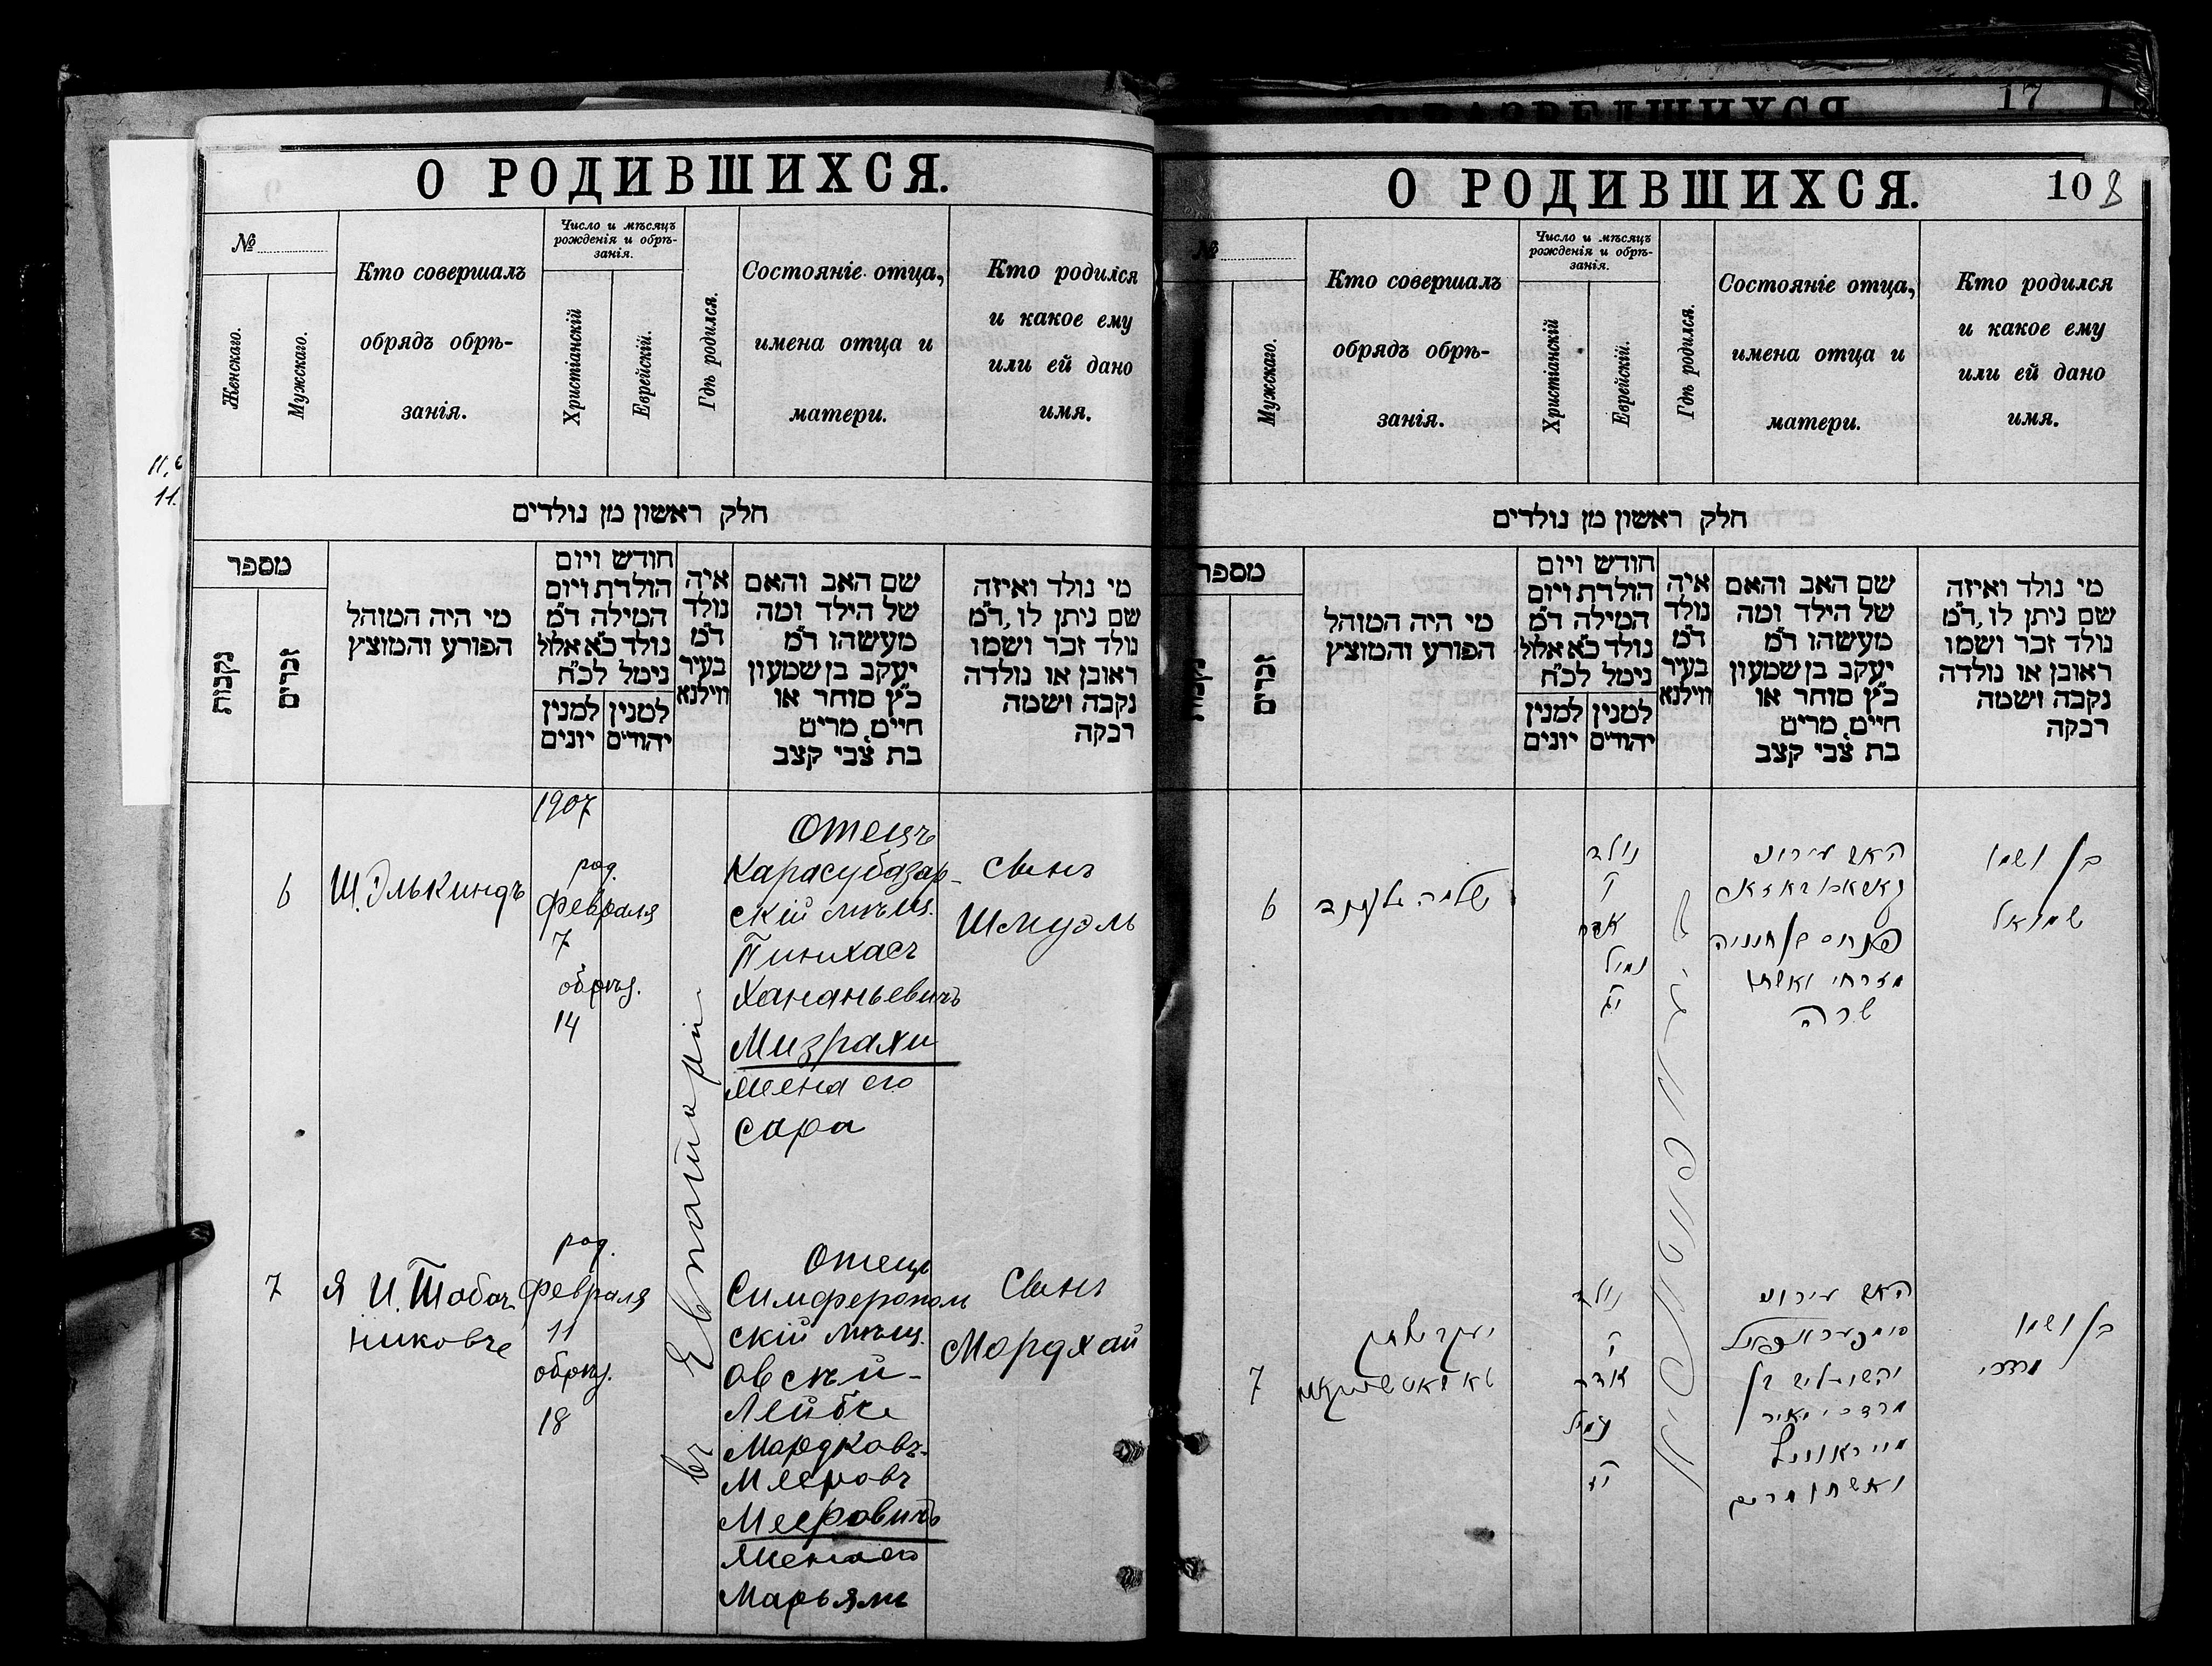 17
О РАЗВЕДШИХСЯ
О РОДИВШИХСЯ.
№
Женскаго.
Мужскаго.
Кто совершалъ
обрядъ обрѣ-
занія.
Число и мѣсяцъ
рожденія и обрѣ-
занія.
Христіанскій
Еврейскій.
Гдѣ родился.
Состояніе отца,
имена отца и
матери.
Кто родился
и какое ему
или ей дано
имя.
11.
חלק ראשון מן נולדים
מספר
נקבות
זכרים
מי היה המוהל
הפורע והמוצץ
חודש ויום
הולדת ויום
המילה ד"מ
נולד כ"א אלול
נימל לכ"ח
למנין
יונים
למנין
יהודים
איה
נולד
ד"מ
בעיר
ווילנא
שם האב והאם
של הילד ומה
מעשהו ד"מ
יעקב בן שמעון
כ"ץ סוחר או
חייט, מרים
בת צבי קצב
מי נולד ואיזה
שם ניתן לו, ד"מ
נולד זכר ושמו
ראובן או נולדה
נקבה ושמה
רבקה
6
Ш. Элькиндъ
1907
род.
Февраля
7
обрѣз.
14
въ Евпаторіи
Отецъ
Карасубазар-
скій мѣщ.
Пинхасъ
Хананьевичъ
Мизрахи
жена его
Сара
Сынъ
Шмуэль
7
Я И. Табач-
никовъ
род.
Февраля
11
обрѣз.
18
Отецъ
Симферополь
скій мѣщ.
Лейбъ
Мордковъ-
Мееровъ
Мееровичъ
жена его
Марьямъ
Сынъ
Мордхай
О РОДИВШИХСЯ.
10 8
№
Мужскаго.
Кто совершалъ
обрядъ обрѣ-
занія.
Число и мѣсяцъ
рожденія и обрѣ-
занія.
Христіанскій
Еврейскій.
Гдѣ родился.
Состояніе отца,
имена отца и
матери.
Кто родился
и какое ему
или ей дано
имя.
חלק ראשון מן נולדים
מספר
נקבות
זכרים
מי היה המוהל
הפורע והמוצץ
חודש ויום
הולדת ויום
המילה ד"מ
נולד כ"א אלול
נימל לכ"ח
למנין
יונים
למנין
יהודים
איה
נולד
ד"מ
בעיר
ווילנא
שם האב והאם
של הילד ומה
מעשהו ד"מ
יעקב בן שמעון
כ"ץ סוחר או
חייט, מרים
בת צבי קצב
מי נולד ואיזה
שם ניתן לו, ד"מ
נולד זכר ושמו
ראובן או נולדה
נקבה ושמה
רבקה
6
שלמה עלקינד
נולד
אדר
נמול
האב עירוני
פנחס בן חנניה
מזרחי ואשתו
שרה
בן ושמו
שמואל
7
נולד
אדר
נמול
האב עירוני
בן
מרדכי מאיר
ואשתו מרים
בן ושמו
מרדכי